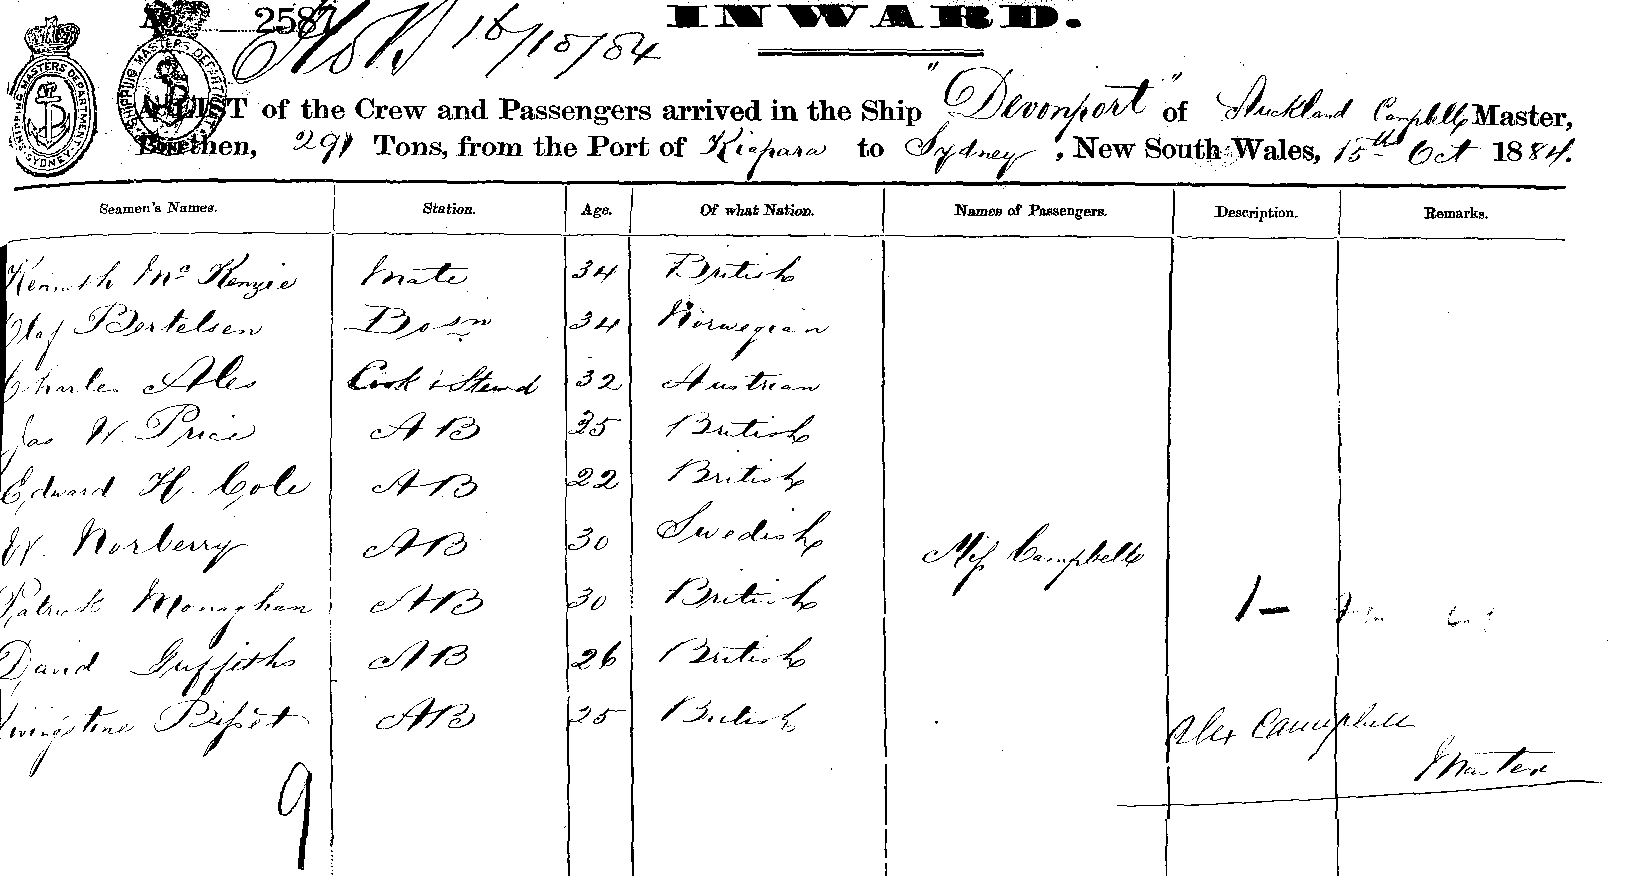 No. 2587
INWARD.
16/10/84
A LIST of the Crew and Passengers arrived in the Ship "Devonport" of Auckland Campbell Master,
Burthen, 291 Tons, from the Port of Kiapara to Sydney, New South Wales, 15th Oct 1884.
Seamen's Names. Station. Age. Of what Nation. Names of Passengers. Description. Remarks.
Kenneth Mc Kenzie Mate 34 British
Olaf Bertelsen Bosn 34 Norwegian
Charles Ales Cook & Stewd 32 Austrian
Jas W. Price AB 25 British
Edward H. Cole AB 22 British
W. Norberry AB 30 Swedish Miss Campbell
Patrick Monaghan AB 30 British 1 –
David Griffiths AB 26 British
Livingstone Bisset AB 25 British
Alex Campbell
Master
9
SHIPPING MASTERS DEPARTMENT SYDNEY
SHIPPING MASTERS DEPARTMENT